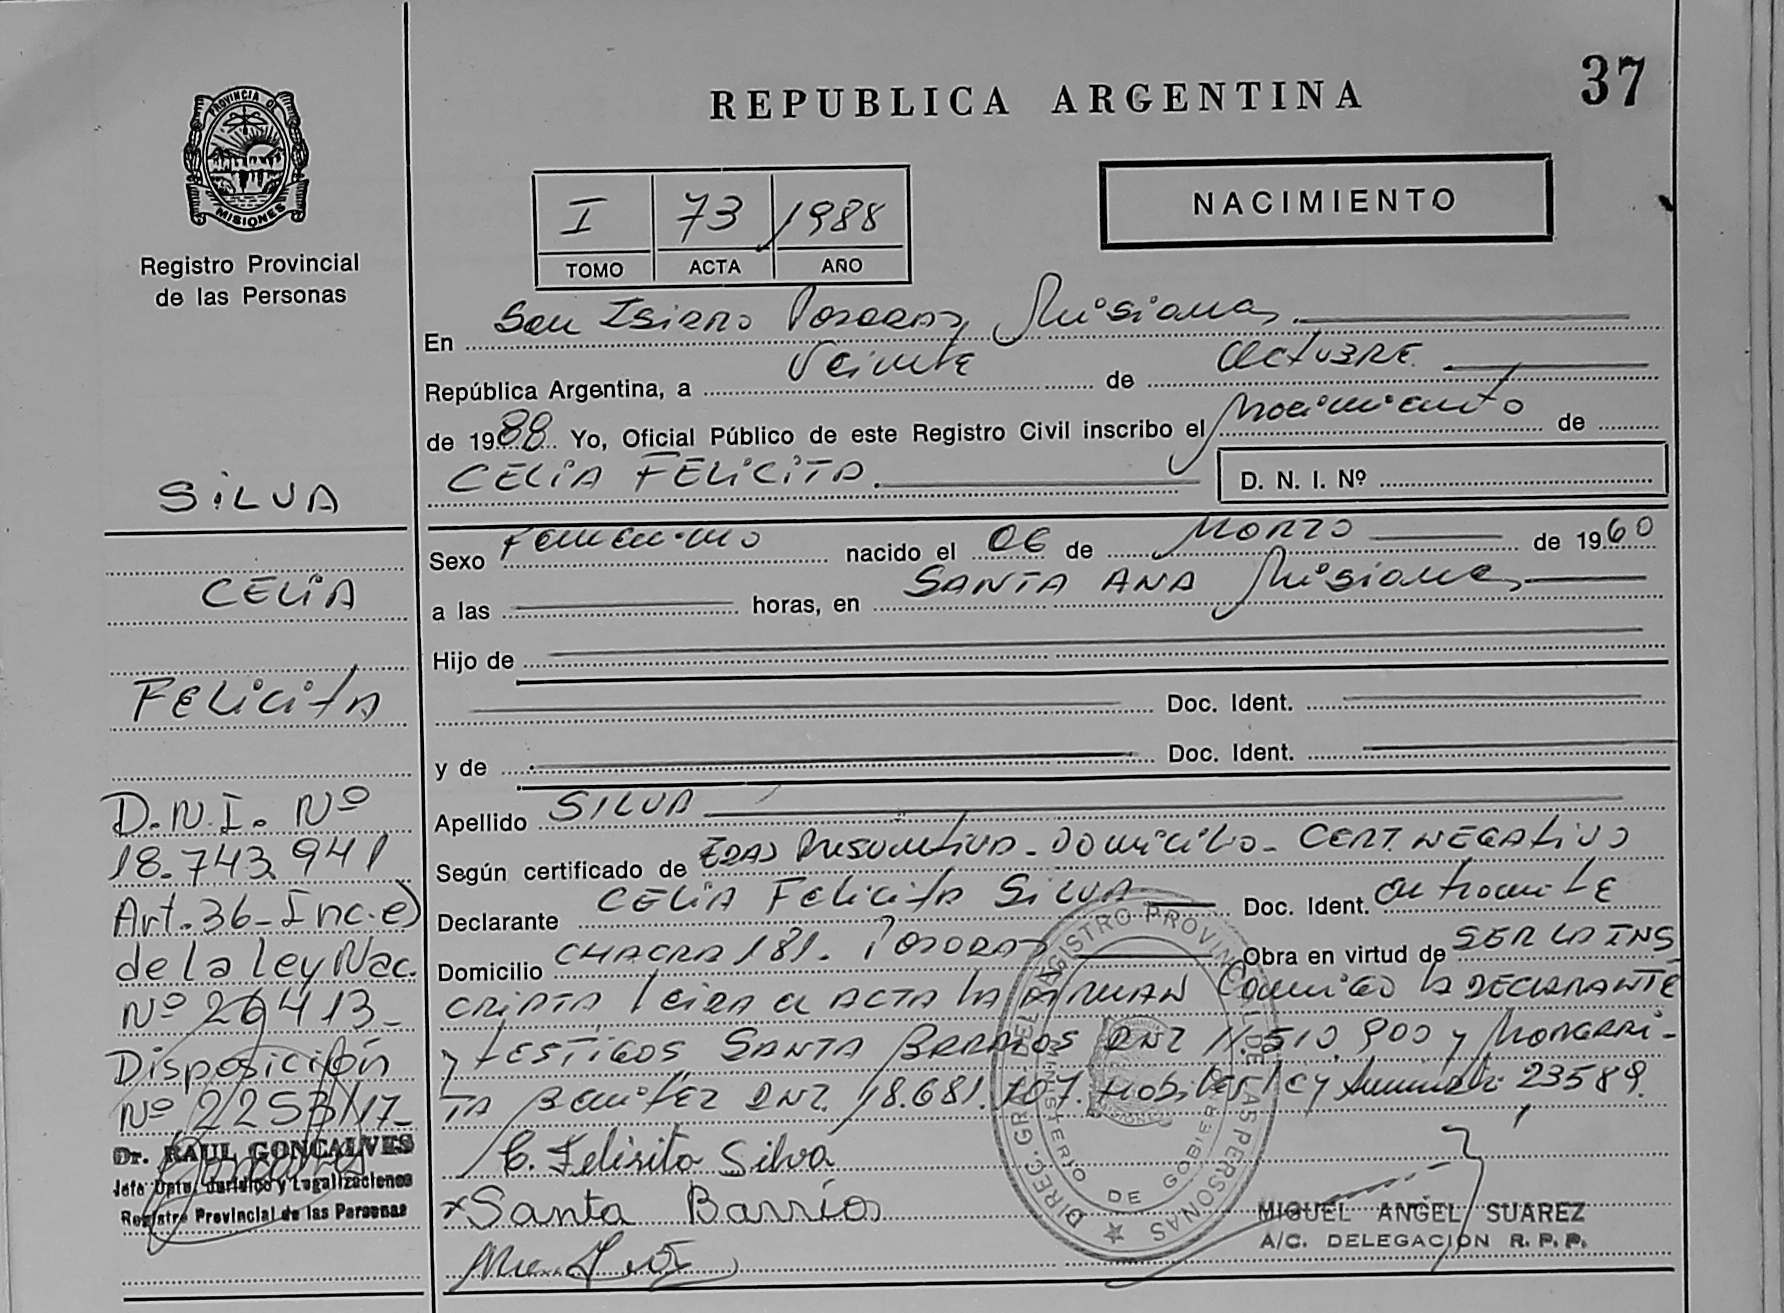 37
REPUBLICA ARGENTINA
PROVINCIA DE
MISIONES
Registro Provincial
de las Personas
I 73 1988
TOMO ACTA AÑO
NACIMIENTO
En San Isidro Posadas, Misiones
República Argentina, a Veinte de octubre
de 1988 Yo, Oficial Público de este Registro Civil inscribo el Nacimiento de
CELIA FELICITA. D. N. I. Nº
Sexo Femenino nacido el 06 de MARZO de 1960
a las horas, en SANTA ANA Misiones
Hijo de
Doc. Ident.
y de Doc. Ident.
Apellido SILVA
Según certificado de EDAD Presuntiva - Domicilio - CERT. NEGATIVO
Declarante CELIA Felicita SILVA Doc. Ident. en tramite
Domicilio CHACRA 181. POSADAS Obra en virtud de SER LA INS
CRIPTA leida el ACTA la FIRMAN Conmigo la DECLARANTE
y TESTIGOS SANTA BARRIOS DNI 11.510.900 y MARGARI-
TA Benitez DNI. 18.681.107. ley 23589.
C. Felisita Silva
x Santa Barrios
MIGUEL ANGEL SUAREZ
A/C. DELEGACION R. P. P.
DIREC. GRAL. DEL REGISTRO PROVINCIAL DE LAS PERSONAS
MINISTERIO DE GOBIERNO
SILVA
CELIA
FELICITA
D.N.I. Nº
18.743.941
Art. 36 - Inc. e)
de la ley Nac.
Nº 26413 -
Disposición
Nº 2253/17 -
Dr. RAUL GONCALVES
Jefe Dpto. Jurídico y Legalizaciones
Registro Provincial de las Personas